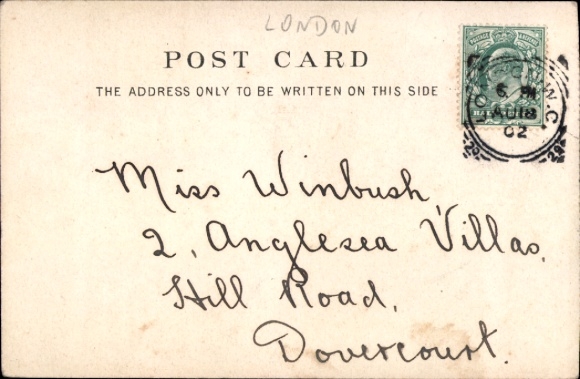 LONDON
POST CARD
THE ADDRESS ONLY TO BE WRITTEN ON THIS SIDE
W.C.
6 PM
AU 18
02
Miss Winbush,
2, Anglesea Villas,
Hill Road,
Dovercourt.